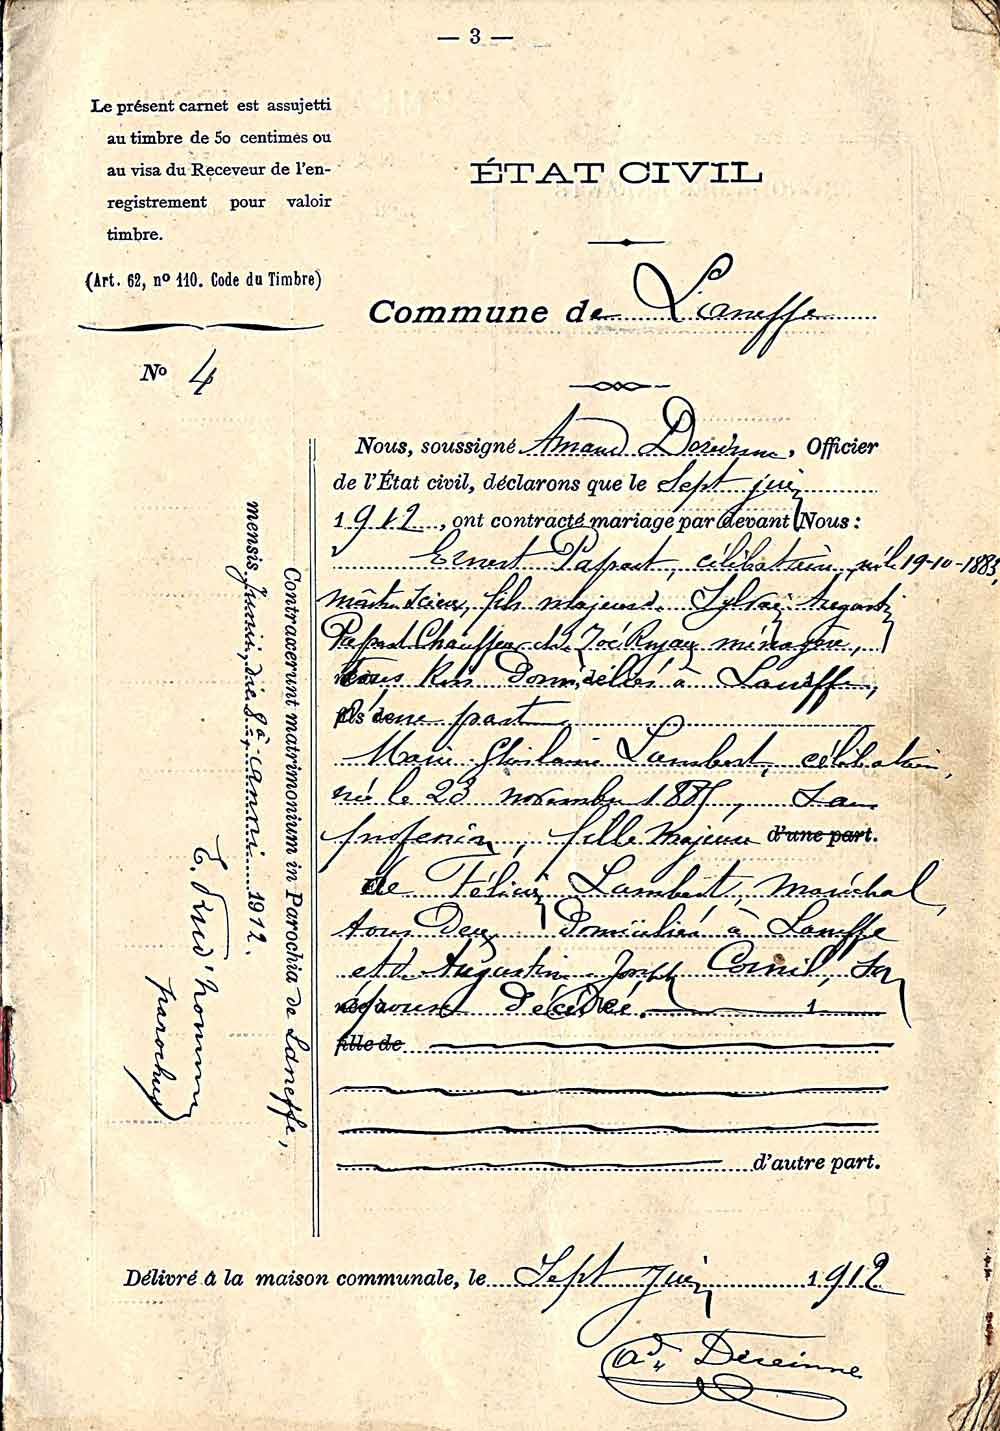 — 3 —
Le présent carnet est assujetti
au timbre de 50 centimes ou
au visa du Receveur de l'en-
registrement pour valoir
timbre.
(Art. 62, nº 110. Code du Timbre)
ÉTAT CIVIL
Commune de Laneffe
Nº 4
Nous, soussigné Amand Dereinne, Officier
de l'État civil, déclarons que le Sept juin
1912, ont contracté mariage par devant Nous :
Ernest Papart, célibataire, né le 19-10-1883,
fils majeur
Papart Chauffeur ménagère,
tous trois Domiciliés à Laneffe,
fils de d'une part
Marie Ghislaine Lambert, célibataire,
née le 23 novembre 1885, San
profession, fille Majeure d'une part.
de Lambert, Maréchal,
tous Deux Domiciliés à Laneffe
et d' Augustine Joseph Cornil, Son
épouse Décédée.
fille de
d'autre part.
Délivré à la maison communale, le Sept Juin 1912
ad. Dereinne
Contraxerunt matrimonium in Parochia de Laneffe,
mensis Junii, die 8â anni 1912.
E. Prud'homme
parochus